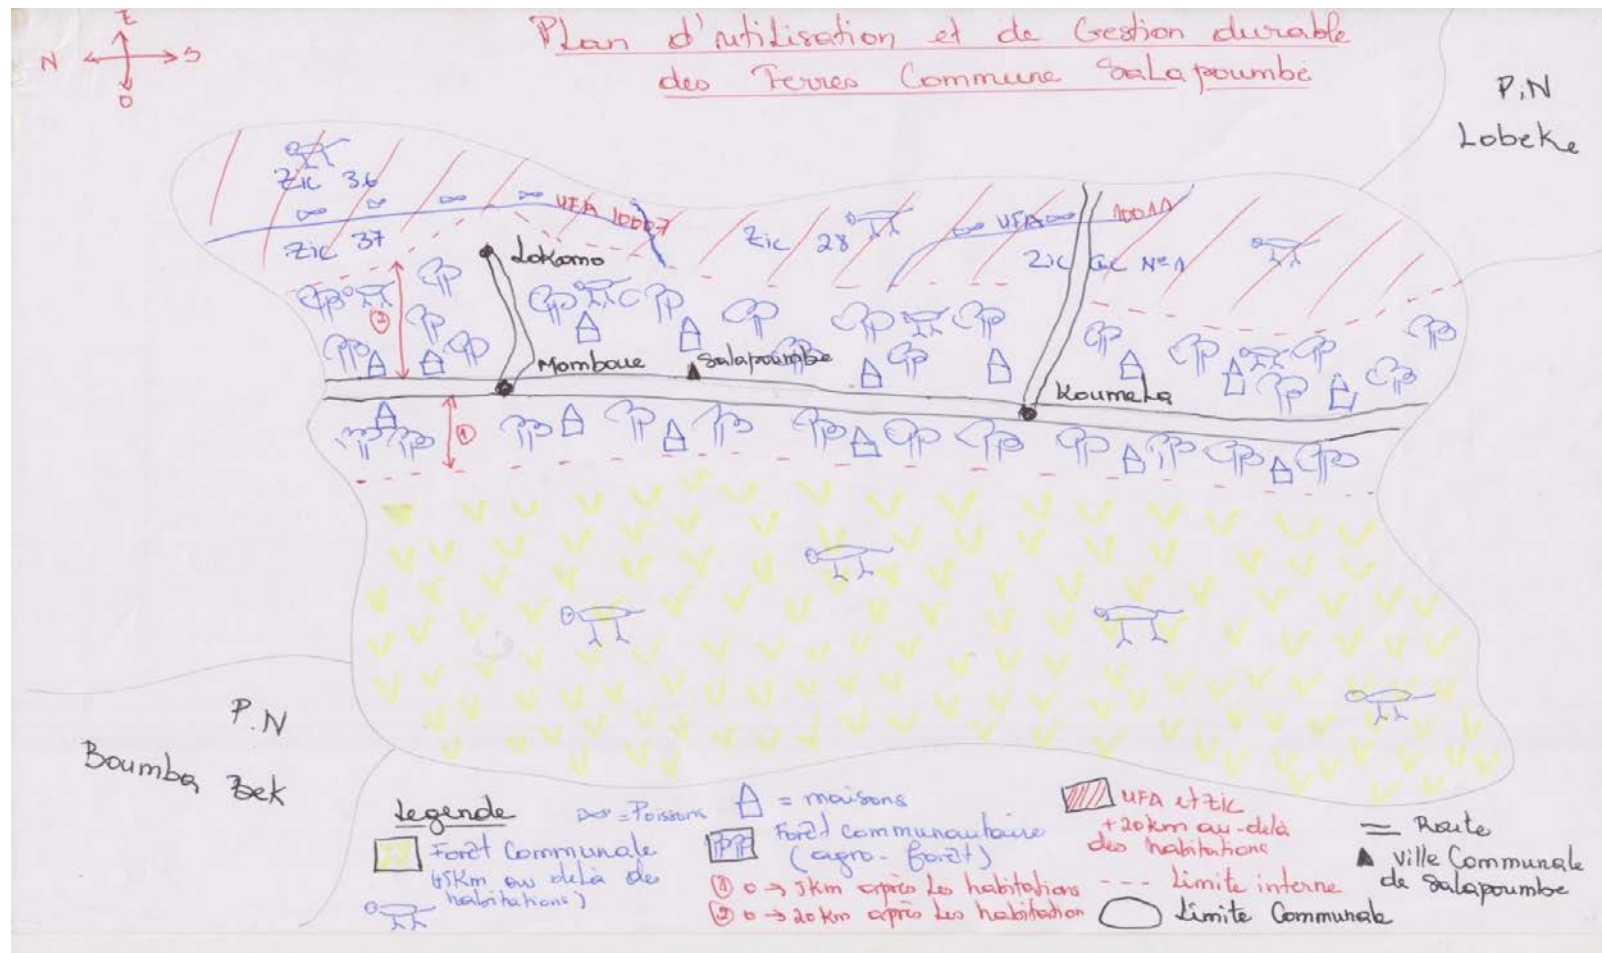 E
N S
O
Plan d'utilisation et de Gestion durable
des Terres Commune Salapoumbé
P.N
Lobeke
Zic 36
UFA 10007
Zic 37
Zic 28
UFA 10011
Zic GC N°1
Lokomo
②
Momboue
Salapoumbe
Koumela
①
P.N
Boumba Bek
Legende
= Poissons
= maisons
UFA et Zic
+20km au-delà
des habitations
Forêt Communale
(+5Km au delà des
habitations)
Forêt Communautaire
(agro-forêt)
① 0 → 5km après les habitations
② 0 → 20km après les habitation
= Route
ville Communale
de Salapoumbe
--- Limite interne
Limite Communale